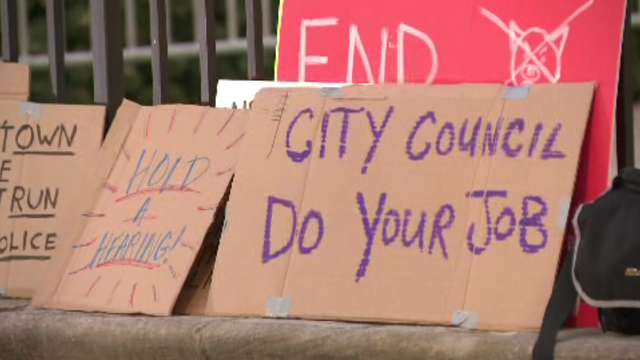 END
TOWN
RUN
HOLD
A
HEARING!
CITY COUNCIL
DO YOUR JOB